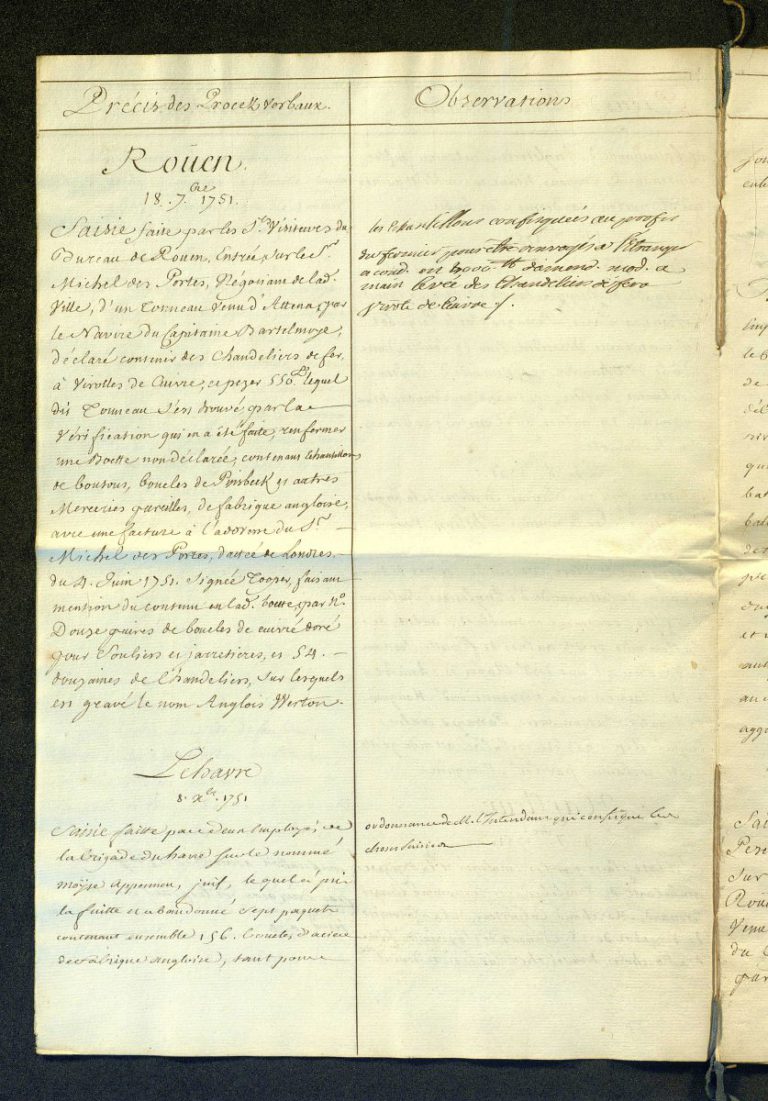 Précis des Procez verbaux.
Roüen.
18. 7.bre 1751.
Saisie faite par les Srs Visiteurs du
Bureau de Roüen, Entrée, sur le Sr
Michel des Portes, Négociant de lad.
Ville, d'un Tonneau venu d'Altena, par
le Navire du Capitaine Bartelmoye,
déclaré contenir des Chandeliers de fer,
à Virolles de Cuivre, et pezer 556.L lequel
dit Tonneau s'est trouvé, par la
Vérification qui en a été faite, renfermer
une Boette non déclarée, contenant Echantillons
de boutons, boucles de Pinsbeck et autres
Merceries pareilles, de fabrique angloise,
avec une facture à l'adresse du Sr
Michel des Portes, dattée de Londres
du 4. Juin 1751. Signée Cooper, faisant
mention du contenu en lad. boette, par No.
Douze paires de boucles de cuivre doré
pour Souliers et jarretieres, et 54.
douzaines de Chandeliers, sur lesquels
est gravé le nom Anglois Werton.
Lehavre
8. Xbre 1751
Saisie faitte par deux Employés de
la brigade du havre sur le nommé
moÿse appemen, juif, lequel a pris
la fuitte et abandonné sept paquets
contenant ensemble 156. boucles d'acier
de fabrique angloise, tant pour
Observations
les Echantillons confisquées au profit
du fermier pour être envoyés a l'Etranger
a cond. en 300 tt d'amend. mod. a
main levée des Chandeliers de fer a
virole de Cuivre /.
ordonnance de M. l'Intendant qui confisque les
choses saisies